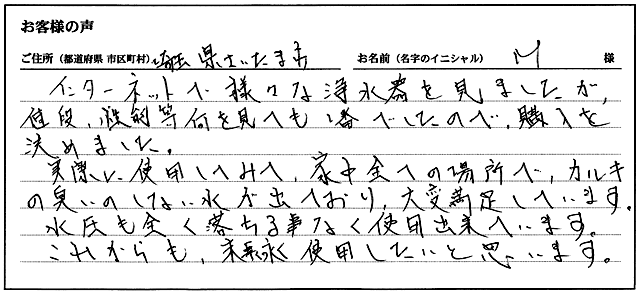 お客様の声
ご住所（都道府県 市区町村） 埼玉県さいたま市 お名前（名字のイニシャル） M 様
インターネットで様々な浄水器を見ましたが、
値段、性能等何を見ても1番でしたので、購入を
決めました。
実際に使用してみて、家中全ての場所で、カルキ
の臭いのしない水が出ており、大変満足しています。
水圧も全く落ちる事なく使用出来ています。
これからも、末永く使用したいと思います。